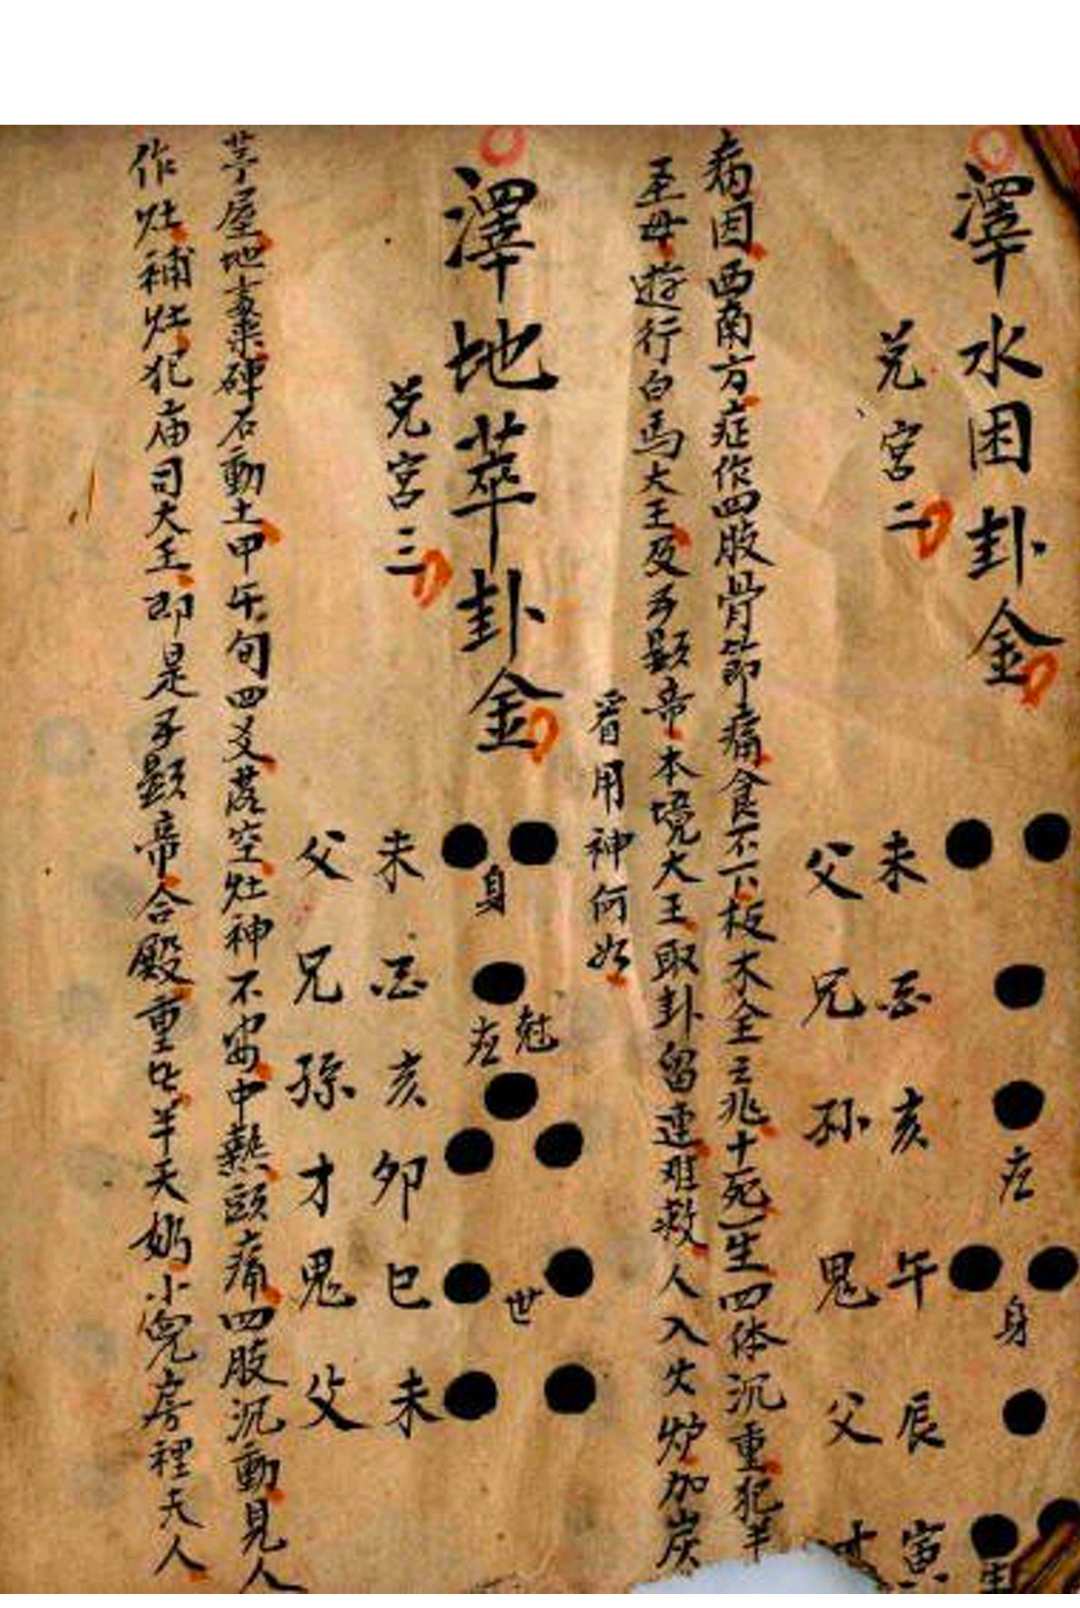 澤水困卦金
兌宮二
未父
酉兄
亥孙
应
午鬼
身
辰父
寅才
世
病因西南方症作四肢骨節痛食不下板木全三兆十死一生四体沉重犯半
至母遊行白馬大王及子顯帝本境大王取卦留連难救人入火炉加炭
看用神何如
澤地萃卦金
兌宮三
未父
身
酉兄
应
亥孫
卯才
巳鬼
世
未父
茅屋地棄磚石動土甲午旬四爻落空灶神不安中熱頭痛四肢沉動見人
作灶補灶犯庙司大王即是子顯帝合殿重七半天奶小兒房裡夫人